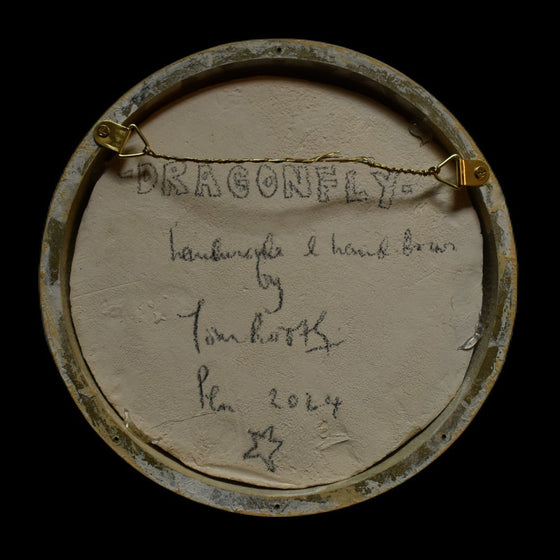 -DRAGONFLY-
handmade & hand drawn
by
Tom Rooth
2024